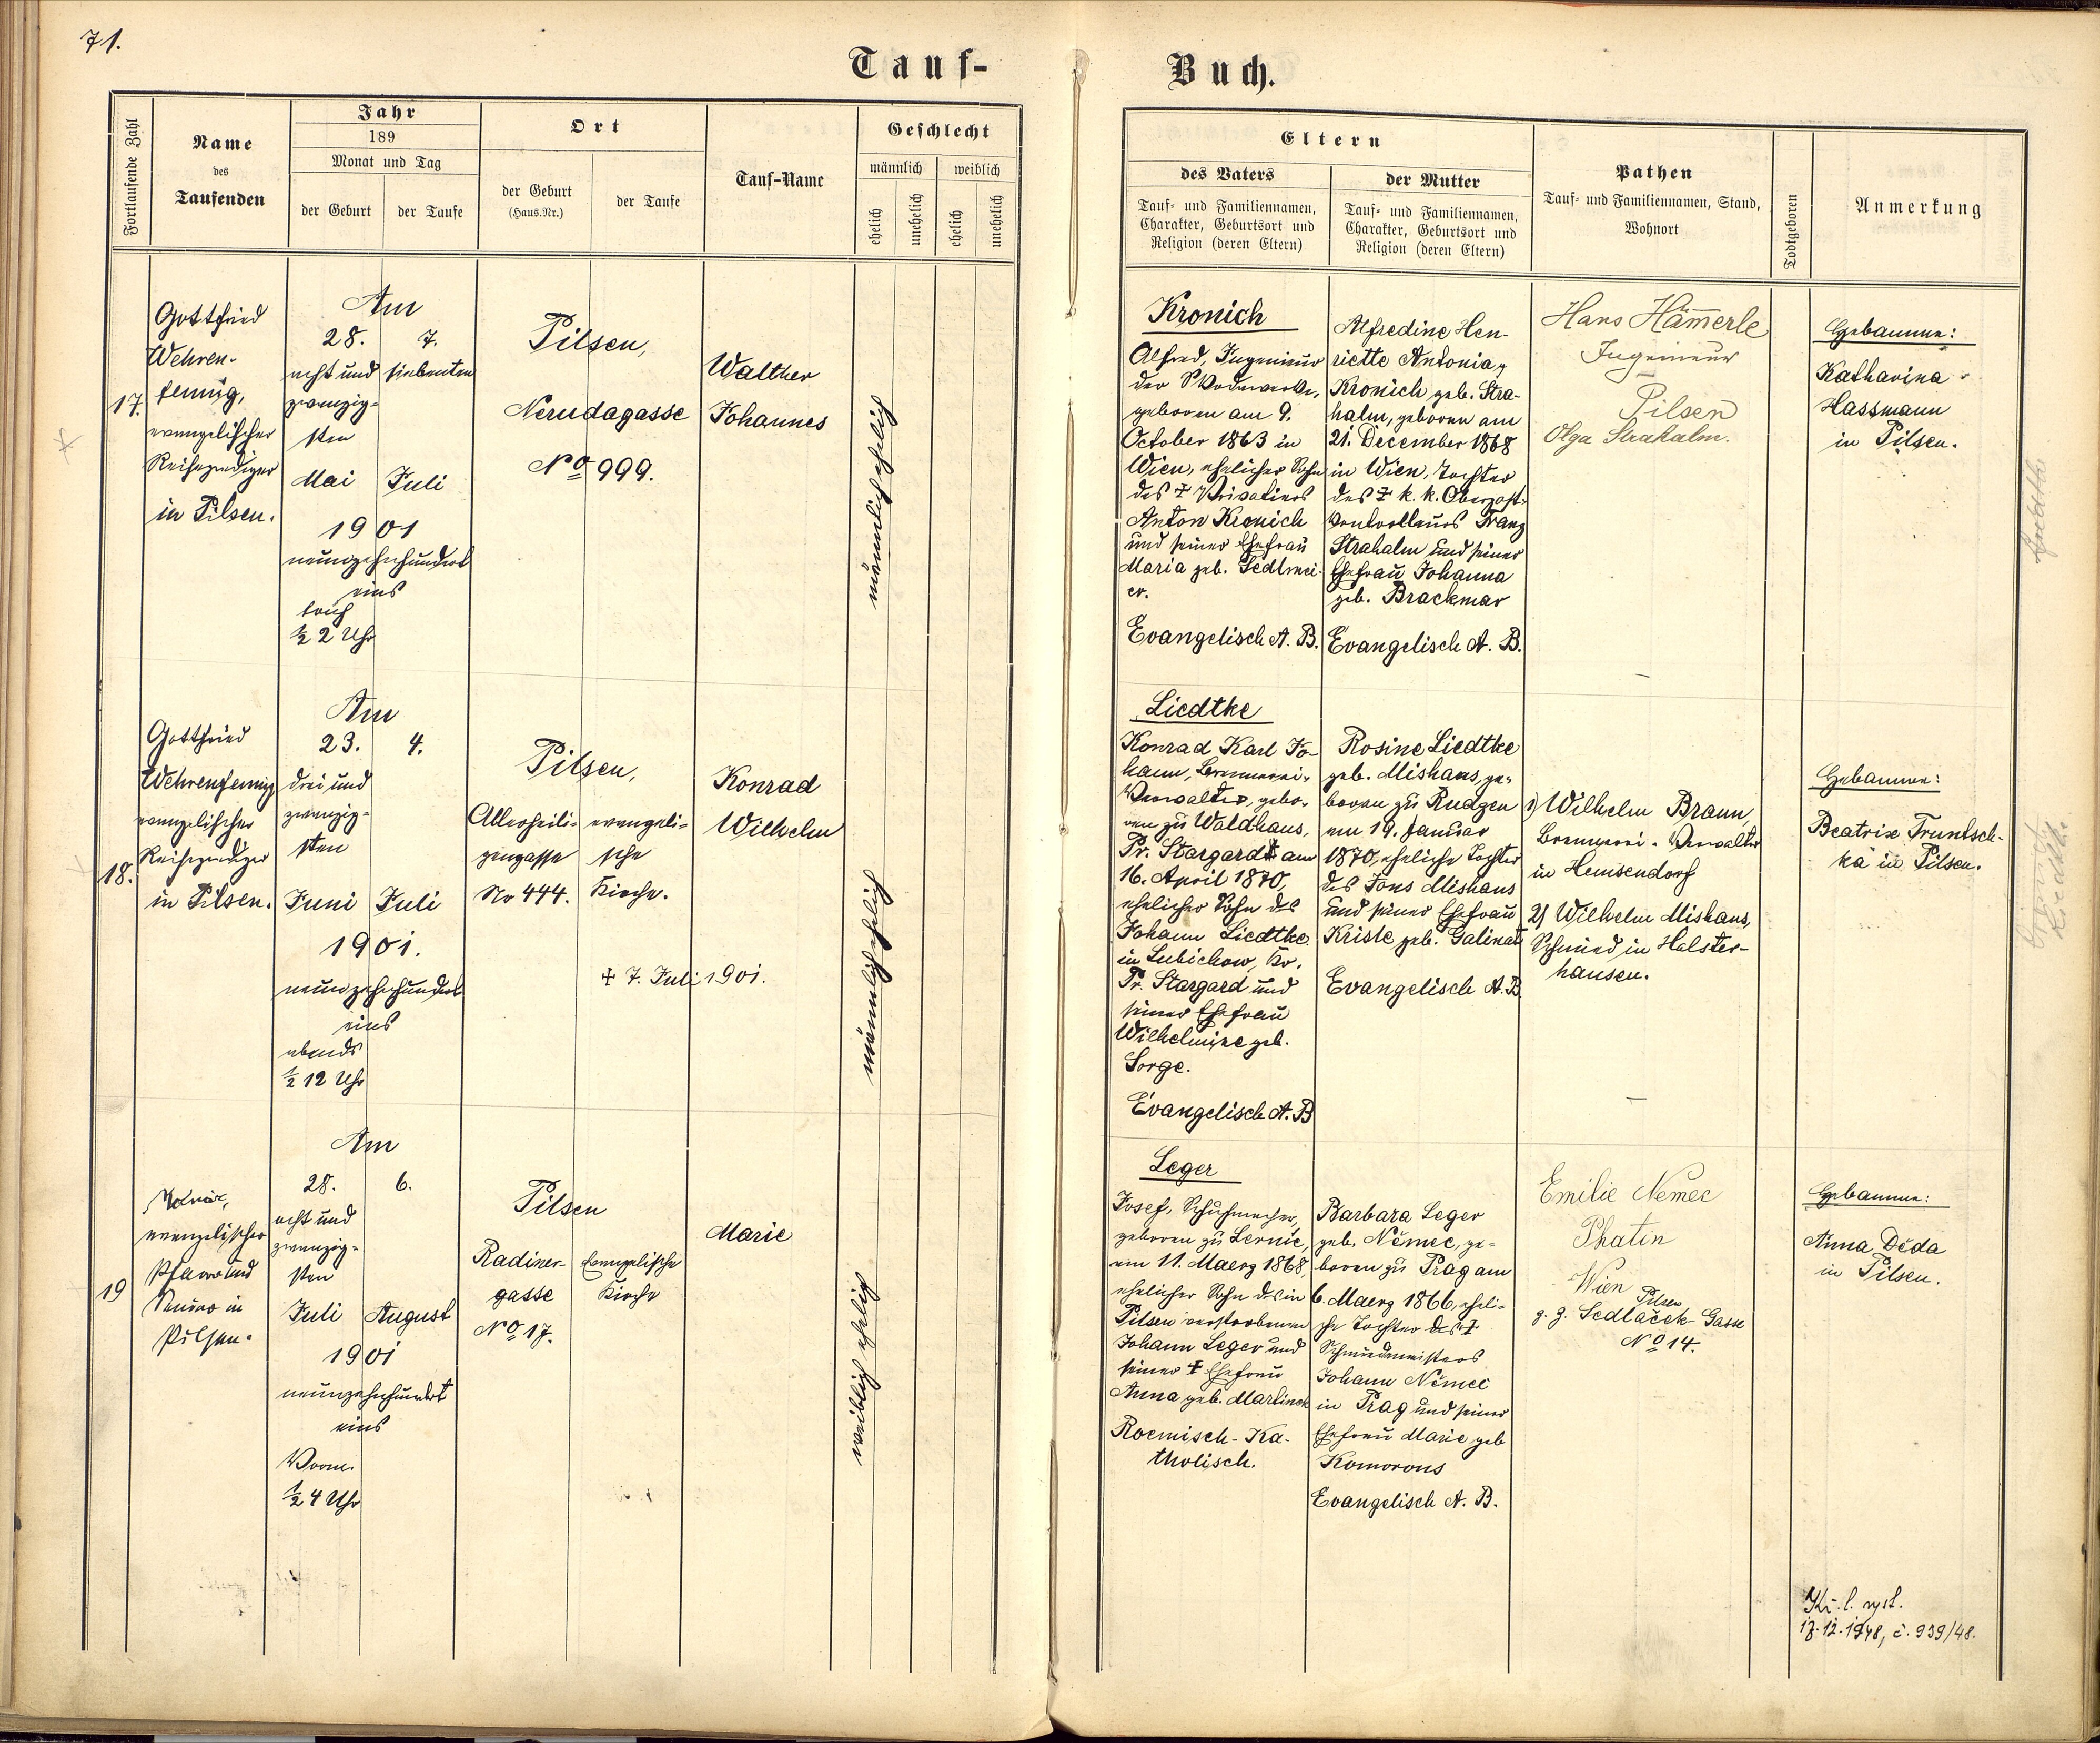 71.
Tauf-
Buch.
Fortlaufende Zahl
Name
des
Taufenden
Jahr
189
Monat und Tag
der Geburt
der Taufe
Ort
der Geburt
(Haus.Nr.)
der Taufe
Tauf-Name
Geschlecht
männlich
weiblich
ehelich
unehelich
ehelich
unehelich
Eltern
des Vaters
Tauf- und Familiennamen,
Charakter, Geburtsort und
Religion (deren Eltern)
der Mutter
Tauf- und Familiennamen,
Charakter, Geburtsort und
Religion (deren Eltern)
Pathen
Tauf- und Familiennamen, Stand,
Wohnort
Todtgeboren
Anmerkung
17.
Gottfried
Wehren-
fennig,
evangelischer
Reiseprediger
in Pilsen.
Am
28.
acht und
zwanzig-
sten
Mai
7.
siebenten
Juli
1901
neunzehnhundert
eins
früh
½ 2 Uhr
Pilsen,
Nerudagasse
No 999.
Walther
Johannes
männlich ehelich
Kronich
Alfred, Ingenieur
der Skodawerke,
geboren am 9.
October 1863 in
Wien, ehelicher Sohn
des † Privatiers
Anton Kronich
und seiner Ehefrau
Maria geb. Sedlmei-
er.
Evangelisch A. B.
Alfredine Hen-
riette Antonia,
Kronich geb. Stra-
halm, geboren am
21. December 1868
in Wien, Tochter
des † k. k. Oberpost-
kontrolleurs Franz
Strahalm und seiner
Ehefrau Johanna
geb. Brackmar
Evangelisch A. B.
Hans Hämmerle
Ingenieur
Pilsen
Olga Strahalm.
Hebamme:
Katharina
Hassmann
in Pilsen.
18.
Gottfried
Wehrenfennig
evangelischer
Reiseprediger
in Pilsen.
Am
23.
drei und
zwanzig-
sten
Juni
4.
Juli
1901.
neunzehnhundert
eins
abends
½ 12 Uhr
Pilsen,
Allerheili-
gengasse
No 444.
evangeli-
sche
Kirche.
† 7. Juli 1901.
Konrad
Wilhelm
männlich ehelich
Liedtke
Konrad Karl Jo-
hann, Brennerei-
Verwalter, gebo-
ren zu Waldhaus,
Pr. Stargardt am
16. April 1870,
ehelicher Sohn des
Johann Liedtke
in Lubichow, Kr.
Pr. Stargard und
seiner Ehefrau
Wilhelmine geb.
Sorge.
Evangelisch A. B
Rosine Liedtke
geb. Mishaus, ge-
boren zu Rudzen
am 19. Januar
1870, eheliche Tochter
des Jons Mishaus
und seiner Ehefrau
Kriste geb. Galinat
Evangelisch A. B
1) Wilhelm Braun,
Brennerei-Verwalter
in Heinsendorf
2) Wilhelm Mishaus,
Schmied in Holster-
hausen.
Hebamme:
Beatrix Truntsch-
ka in Pilsen.
19
Molnár,
evangelischer
Pfarrer und
Senior in
Pilsen.
Am
28.
acht und
zwanzig-
sten
Juli
6.
August
1901
neunzehnhundert
eins
Vorm.
½ 4 Uhr
Pilsen
Radiner-
gasse
No 17.
Evangelische
Kirche
Marie
weiblich ehelich
Leger
Josef, Schuhmacher,
geboren zu Lernic,
am 11. Maerz 1868,
ehelicher Sohn des in
Pilsen verstorbenen
Johann Leger und
seiner † Ehefrau
Anna geb. Martinek
Roemisch-Ka-
tholisch.
Barbara Leger
geb. Němec, ge-
boren zu Prag am
6. Maerz 1866, eheli-
che Tochter des †
Schmiedmeisters
Johann Němec
in Prag und seiner
Ehefrau Marie geb
Komorous
Evangelisch A. B.
Emilie Nemec
Phatin
Wien
Pilsen
z. Z. Sedláček-Gasse
No 14.
Hebamme:
Anna Děda
in Pilsen.
Kř. l. vyst.
17.12.1948, č. 939/48.